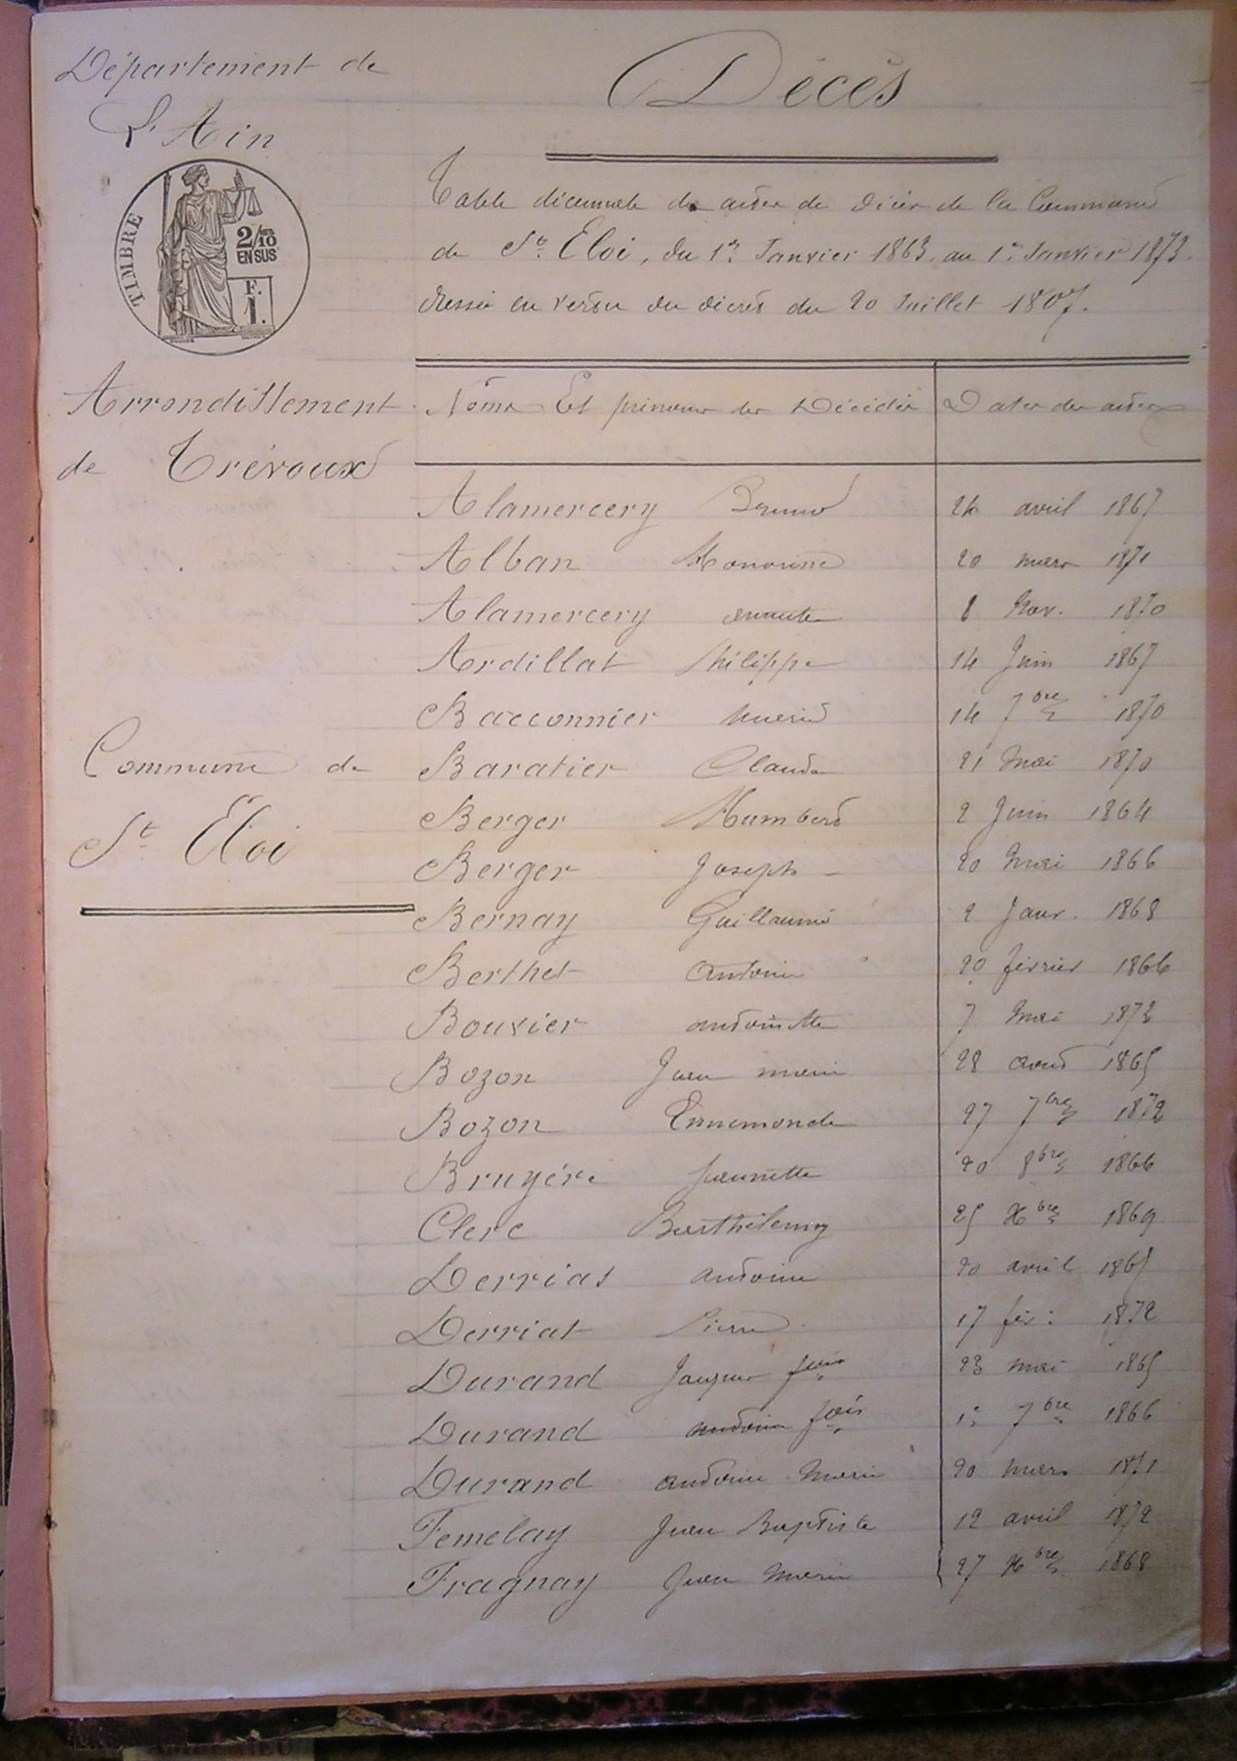 Département de
L'Ain
TIMBRE
2/10
EN SUS
F.
1.
Arrondissement
de Trévoux
Commune de
St Eloi
Décès
Table décennale des actes de décès de la Commune
de St Eloi, du 1er Janvier 1863 au 1er Janvier 1873.
dressée en vertu du décret du 20 Juillet 1807.
Noms Et prénoms des Décédés Dates des actes
Alamercery Bruno 24 avril 1867
Alban Honorine 20 mars 1871
Alamercery 8 Nov. 1870
Ardillat Philippe 14 Juin 1867
Bacconnier Marie 14 7bre 1870
Baratier Claude 21 Mai 1870
Berger Humbert 2 Juin 1864
Berger Joseph 20 Mai 1866
Bernay Guillaume 2 Janv. 1868
Berthet Antoine 20 février 1866
Bouvier antoinette 7 Mai 1872
Bozon Jean marie 28 aout 1865
Bozon Ennemonde 27 7bre 1872
Bruyére Jeannette 20 8bre 1866
Clerc Barthélemy 25 Xbre 1869
Derrias antoine 20 avril 1865
Derriat Pierre 17 fév: 1872
Durand Jacques fois 23 mai 1865
Durand antoine fois 1er 7bre 1866
Durand antoine Marie 20 mars 1871
Femelay Jean Baptiste 12 avril 1872
Fragnay Jean Marie 27 Xbre 1868